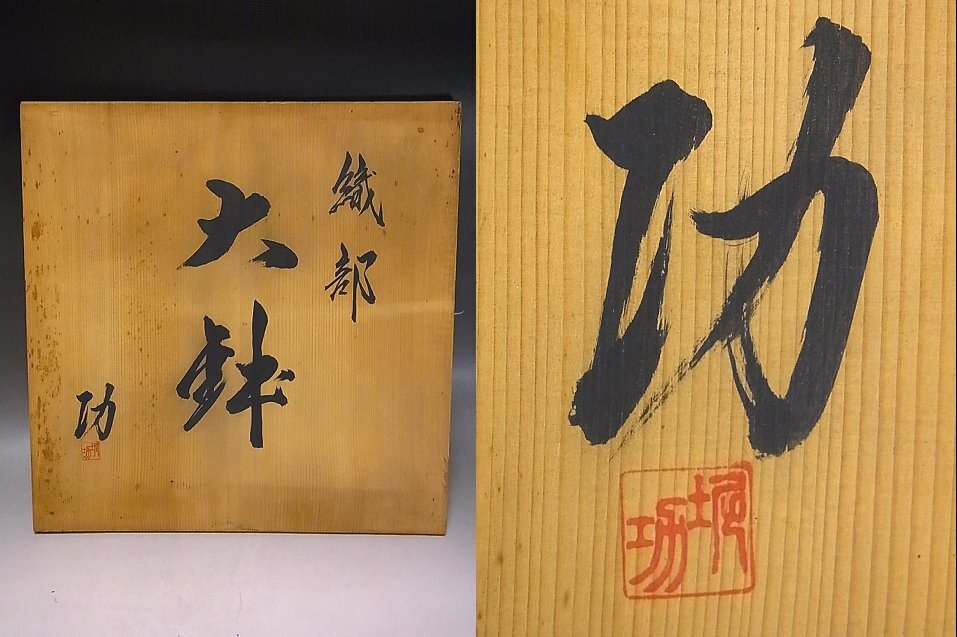 織部
大鉢
功
功